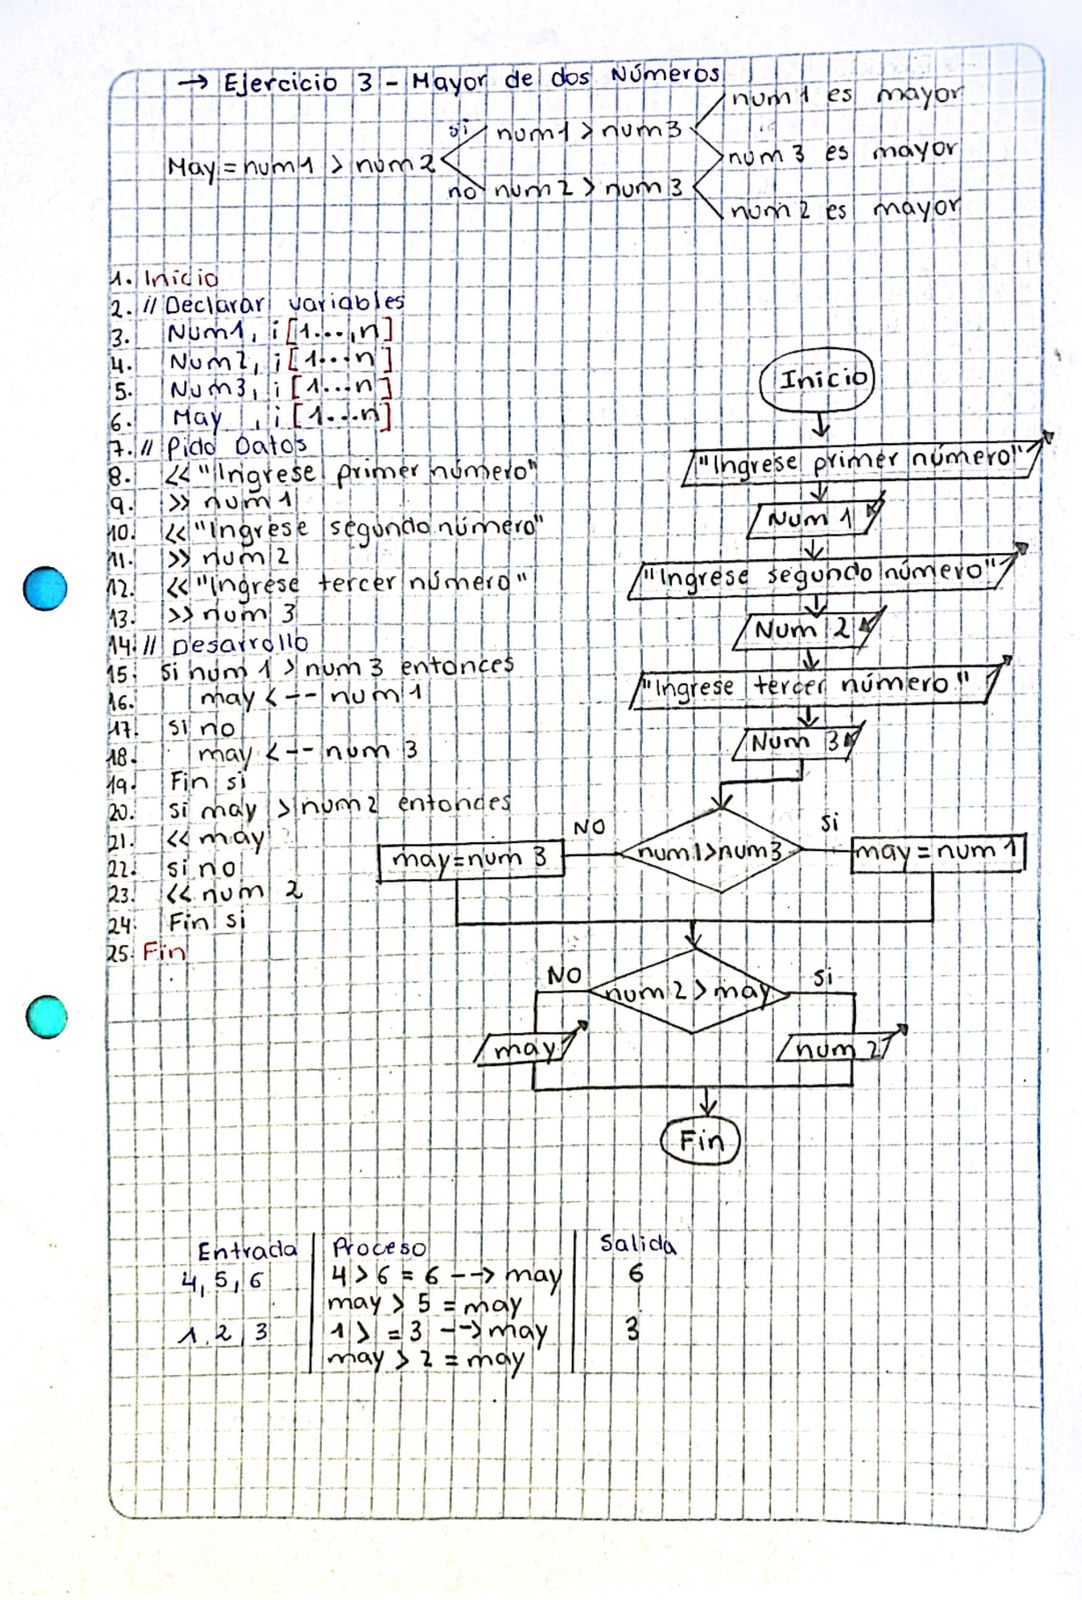 → Ejercicio 3 - Mayor de dos Números
num1 es mayor
si num1 > num3
May = num1 > num2
num3 es mayor
no num2 > num3
num2 es mayor
1. Inicio
2. // Declarar variables
3. Num1, i [1...,n]
4. Num2, i [1...n]
5. Num3, i [1...n]
6. May , i [1...n]
7. // Pido Datos
8. << "Ingrese primer número"
9. >> num1
10. << "Ingrese segundo número"
11. >> num2
12. << "Ingrese tercer número"
13. >> num 3
14. // Desarrollo
15. Si num 1 > num 3 entonces
16. may <-- num 1
17. si no
18. may <-- num 3
19. Fin si
20. si may > num2 entondes
21. << may
22. si no
23. << num 2
24. Fin si
25. Fin
Inicio
"Ingrese primer número"
Num 1
"Ingrese segundo número"
Num 2
"Ingrese tercer número"
Num 3
NO
Si
may=num 3
num1>num3
may = num 1
NO
Si
num 2 > may
may
num 2
Fin
Entrada Proceso Salida
4, 5, 6 4 > 6 = 6 --> may 6
may > 5 = may
1, 2, 3 1 > = 3 --> may 3
may > 2 = may